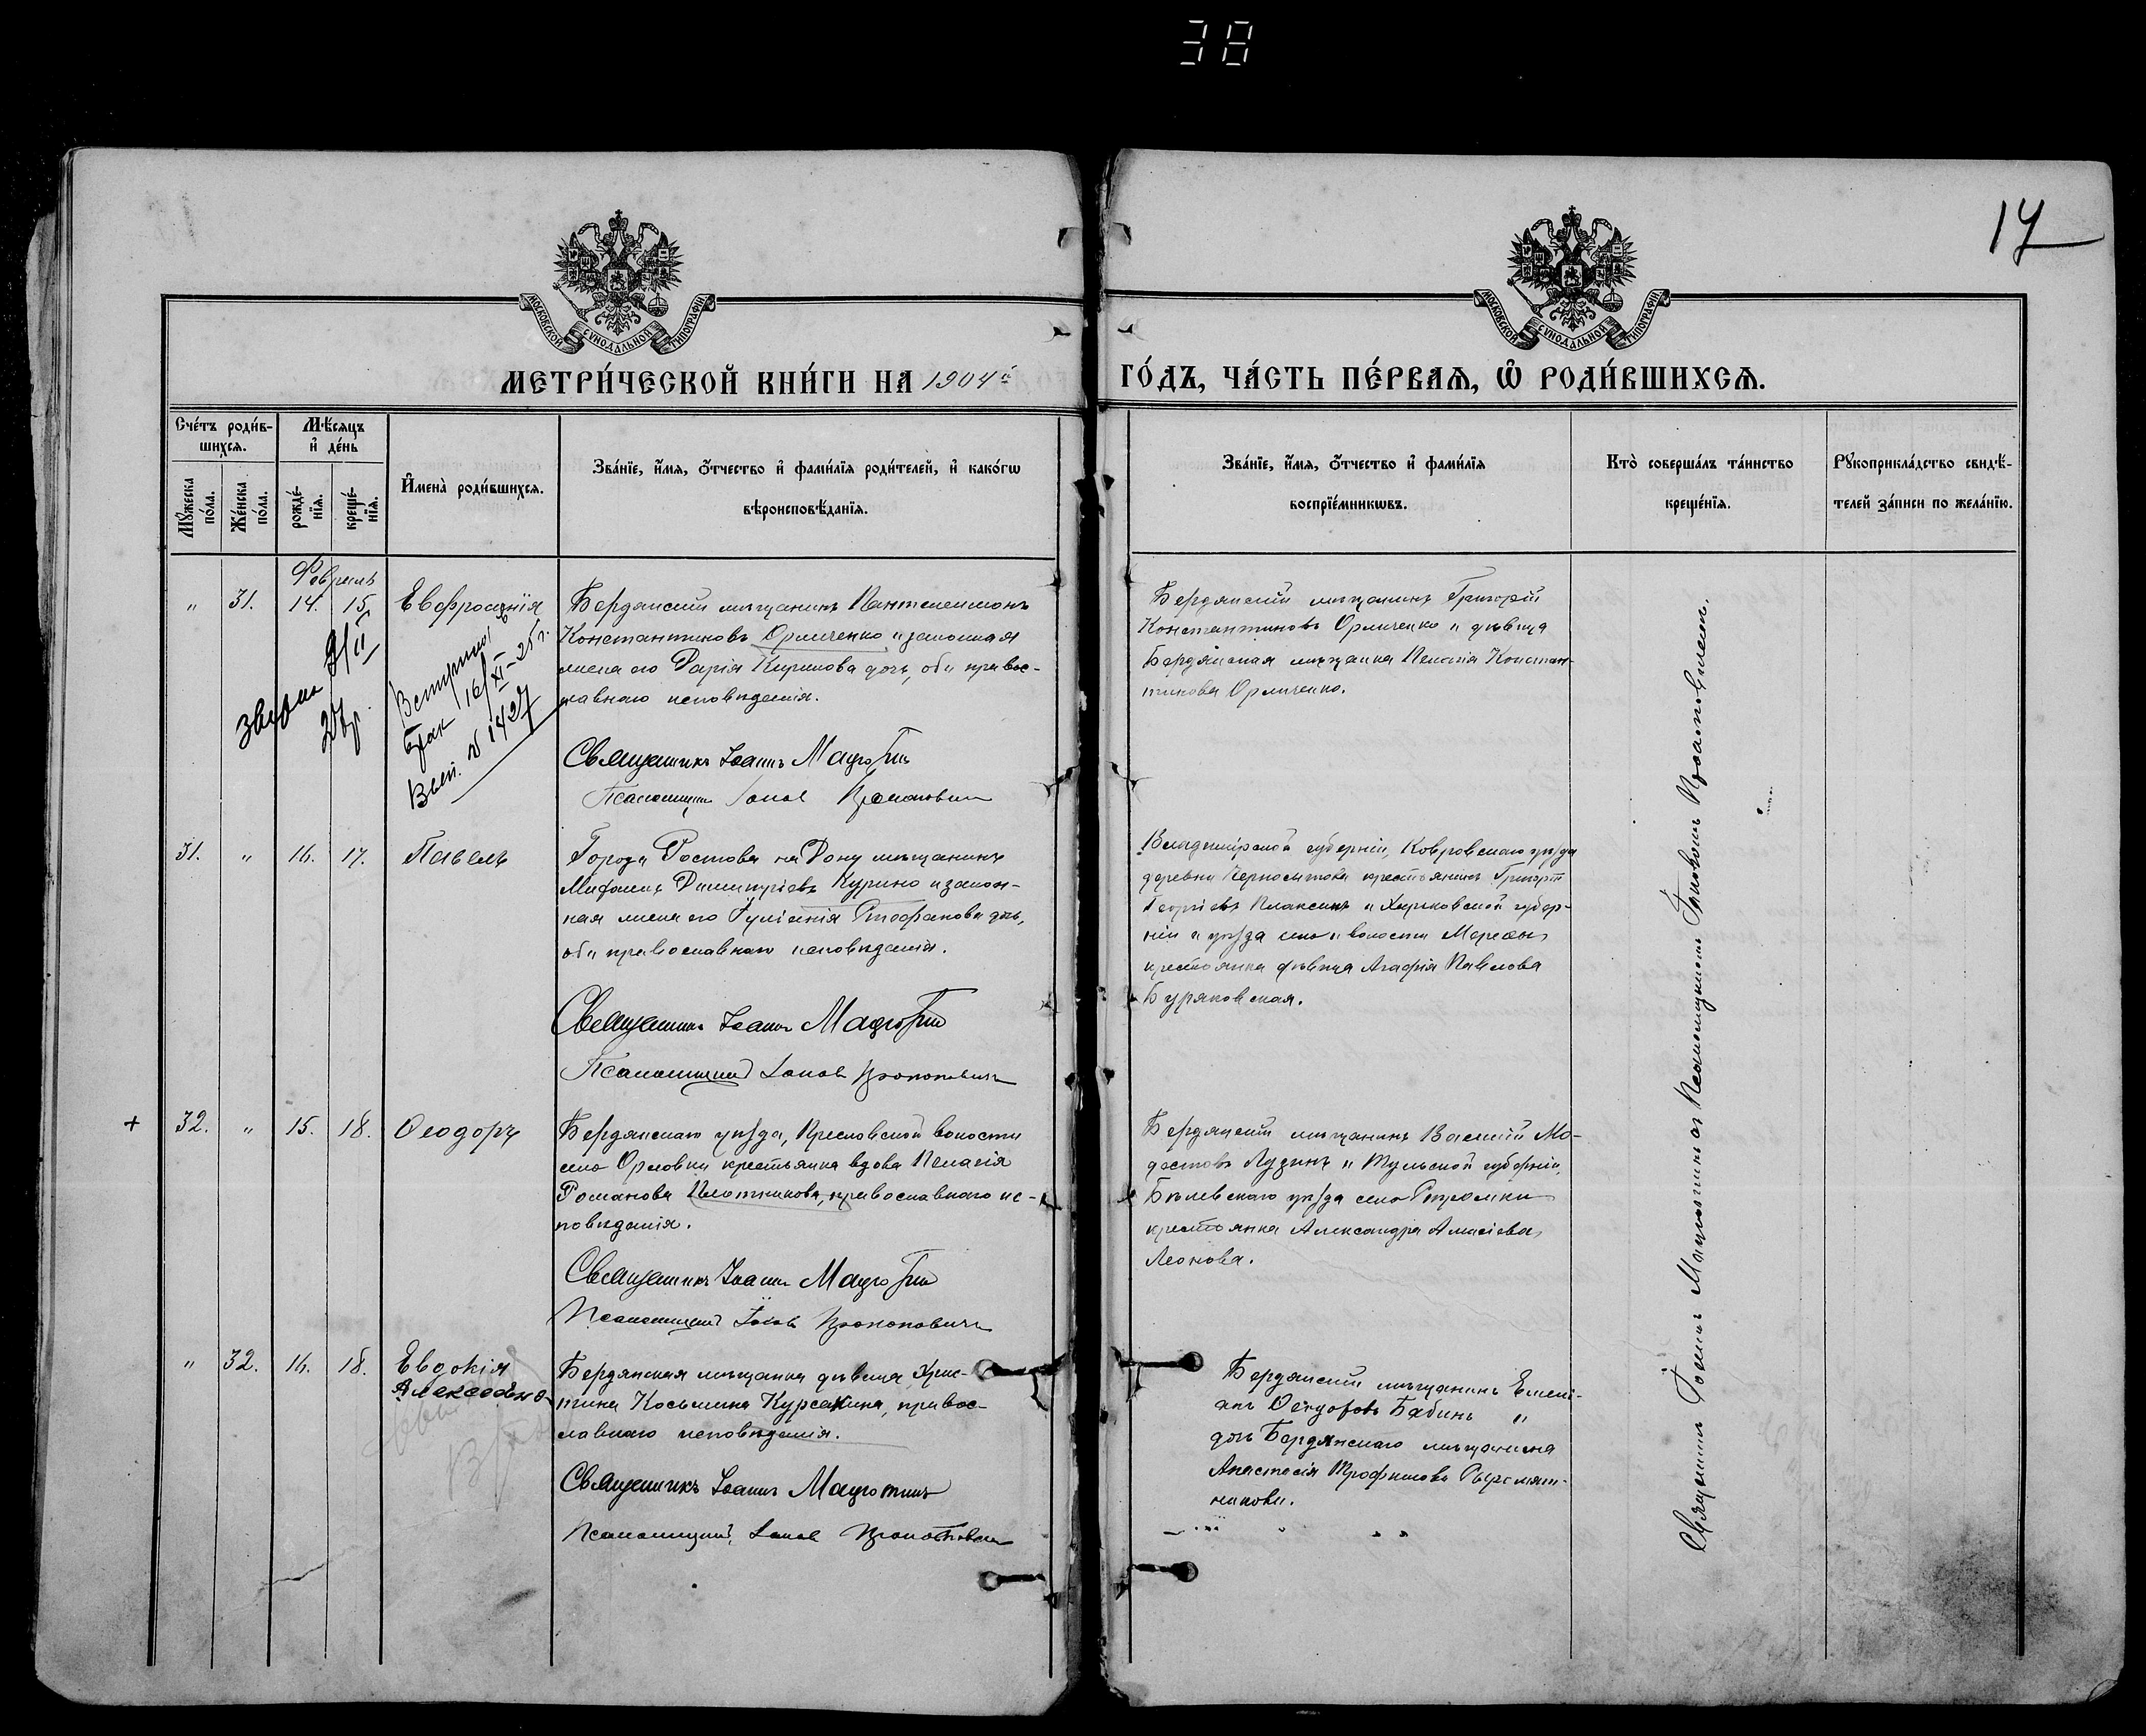 38
17
МОСКОВСКОЙ СѴНОДАЛЬНОЙ ТИПОГРАФІИ
МОСКОВСКОЙ СѴНОДАЛЬНОЙ ТИПОГРАФІИ
МЕТРИ́ЧЕСКОЙ КНИ́ГИ НА 1904й
ГО́ДЪ, ЧА́СТЬ ПЕ́РВАѦ, Ѽ РОДИ́ВШИХСѦ.
Сче́тъ роди́в-
шихсѧ.
Мꙋ́жеска по́ла.
Же́нска по́ла.
Мѣ́сѧцъ
и҆ де́нь
рожде́-
нїѧ.
креще́-
нїѧ.
И҆мена̀ роди́вшихсѧ.
Зва́нїе, и҆́мѧ, ѻ҆́тчество и҆ фами́лїѧ роди́телей, и҆ како́гѡ
вѣроисповѣ́данїѧ.
Зва́нїе, и҆́мѧ, ѻ҆́тчество и҆ фами́лїѧ
воспрїе́мникѡвъ.
Кто̀ соверша́лъ та́инство
креще́нїѧ.
Рꙋкоприкла́дство свидѣ́-
телей за́писи по жела́нїю.
Февраль
" 31. 14. 15. Евфросинія
Бердянскій мѣщанинъ Пантелеимонъ
Константиновъ Орличенко и законная
жена его Дарія Кирилова дочь, оба правос-
лавнаго исповѣданія.
Священникъ Іоаннъ
Псаломщикъ Іаковъ Прокопович
брак 16/XI-25 г.
Вып. № 1427
Бердянскій мѣщанинъ Григорій
Константиновъ Орличенко и дѣвица
Бердянская мѣщанка Пелагія Констан-
тинова Орличенко.
31. " 16. 17. Павелъ
Города Ростова на Дону мѣщанинъ
Димитріевъ Курино и закон-
ная жена его Іуліанія Стефанова дочь,
оба православнаго исповѣданія.
Священникъ Іоаннъ
Псаломщикъ Іаков Прокоповичъ
Владимірской губерніи, Ковровскаго уѣзда
деревни крестьянинъ Григорій
Георгіевъ Плаксинъ и Харьковской губер-
ніи и уѣзда села и волости Мерефы
крестьянка дѣвица Агафія Павлова
Буряковская.
+ 32. " 15. 18. Ѳеодоръ
Бердянскаго уѣзда, волости
села Орловки крестьянка вдова Пелагія
Романова Плотникова, православнаго ис-
повѣданія.
Священникъ Іоаннъ
Псаломщикъ Іаковъ Прокоповичъ
Бердянскій мѣщанинъ Василій Мо-
дестовъ Лузинъ и Тульской губерніи,
Бѣлевскаго уѣзда села
крестьянка Александра
Леонова.
" 32. 16. 18. Евдокія
Алексеевна
Бердянская мѣщанка дѣвица Хрис-
тина Косьмина Курсакина, правос-
лавнаго исповѣданія.
Священникъ Іоаннъ
Псаломщикъ, Іаков Прокопович
Бердянскій мѣщанинъ Емелі-
анъ Ѳеодоровъ Бабинъ и
дочь Бердянскаго мѣщанина
Анастасія Трофимова Сыромят-
никова.
Священникъ Іоаннъ съ Псаломщикомъ Іаковомъ Прокоповичемъ.